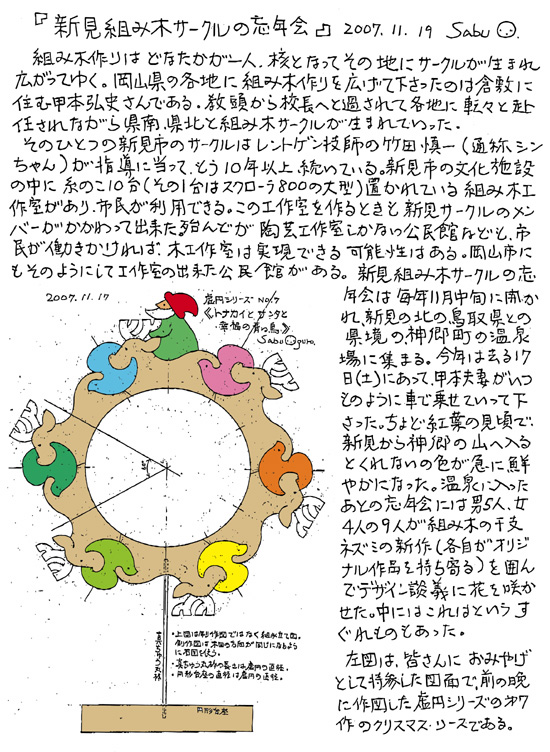 『新見組み木サークルの忘年会』 2007.11.19 Sabu
組み木作りはどなたかが一人、核となってその地にサークルが生まれ
広がってゆく。岡山県の各地に組み木作りを広げて下さったのは倉敷に
住む甲本弘史さんである。教頭から校長へと過されて各地に転々と赴
任されながら県南、県北と組み木サークルが生まれていった。
そのひとつの新見市のサークルはレントゲン技師の竹田慎一(通称、シン
ちゃん)が指導に当って、もう10年以上続いている。新見市の文化施設
の中に糸のこ10台(その1台はスクローラ800の大型)置かれている組み木工
作室があり、市民が利用できる。この工作室を作るときも新見サークルのメン
バーがかかわって出来た。殆んどが陶芸工作室しかない公民館なども、市
民が働きかければ、木工作室は実現できる可能性はある。岡山市に
もそのようにして工作室の出来た公民館がある。新見組み木サークルの忘
年会は毎年11月中旬に開か
れ、新見の北の鳥取県との
県境の神郷町の温泉
場に集まる。今年は去る17
日(土)にあって、甲本夫妻がいつ
ものように車で乗せていって下
さった。ちょど紅葉の見頃で、
新見から神郷の山へ入る
とくれないの色が急に鮮
やかになった。温泉に入った
あとの忘年会には男5人、女
4人の9人が組み木の干支
ネズミの新作(各自がオリジ
ナル作品を持ち寄る)を囲ん
でデザイン談義に花を咲か
せた。中にはこれはというす
ぐれものもあった。
左図は、皆さんにおみやげ
として持参した図面で、前の晩
に作図した虚円シリーズの第7
作のクリスマス・リースである。
2007.11.17
虚円シリーズ No.7
《トナカイとサンタと
幸福の青い鳥》
Sabu Oguro.
・上図は製作図ではなく組み立て図。
製作図は木目の方向が同じになるよう
に右図を使う。
・真ちゅう丸棒の長さは虚円の直径。
・円形台座の直径は虚円の直径。
真ちゅう丸棒
円形台座